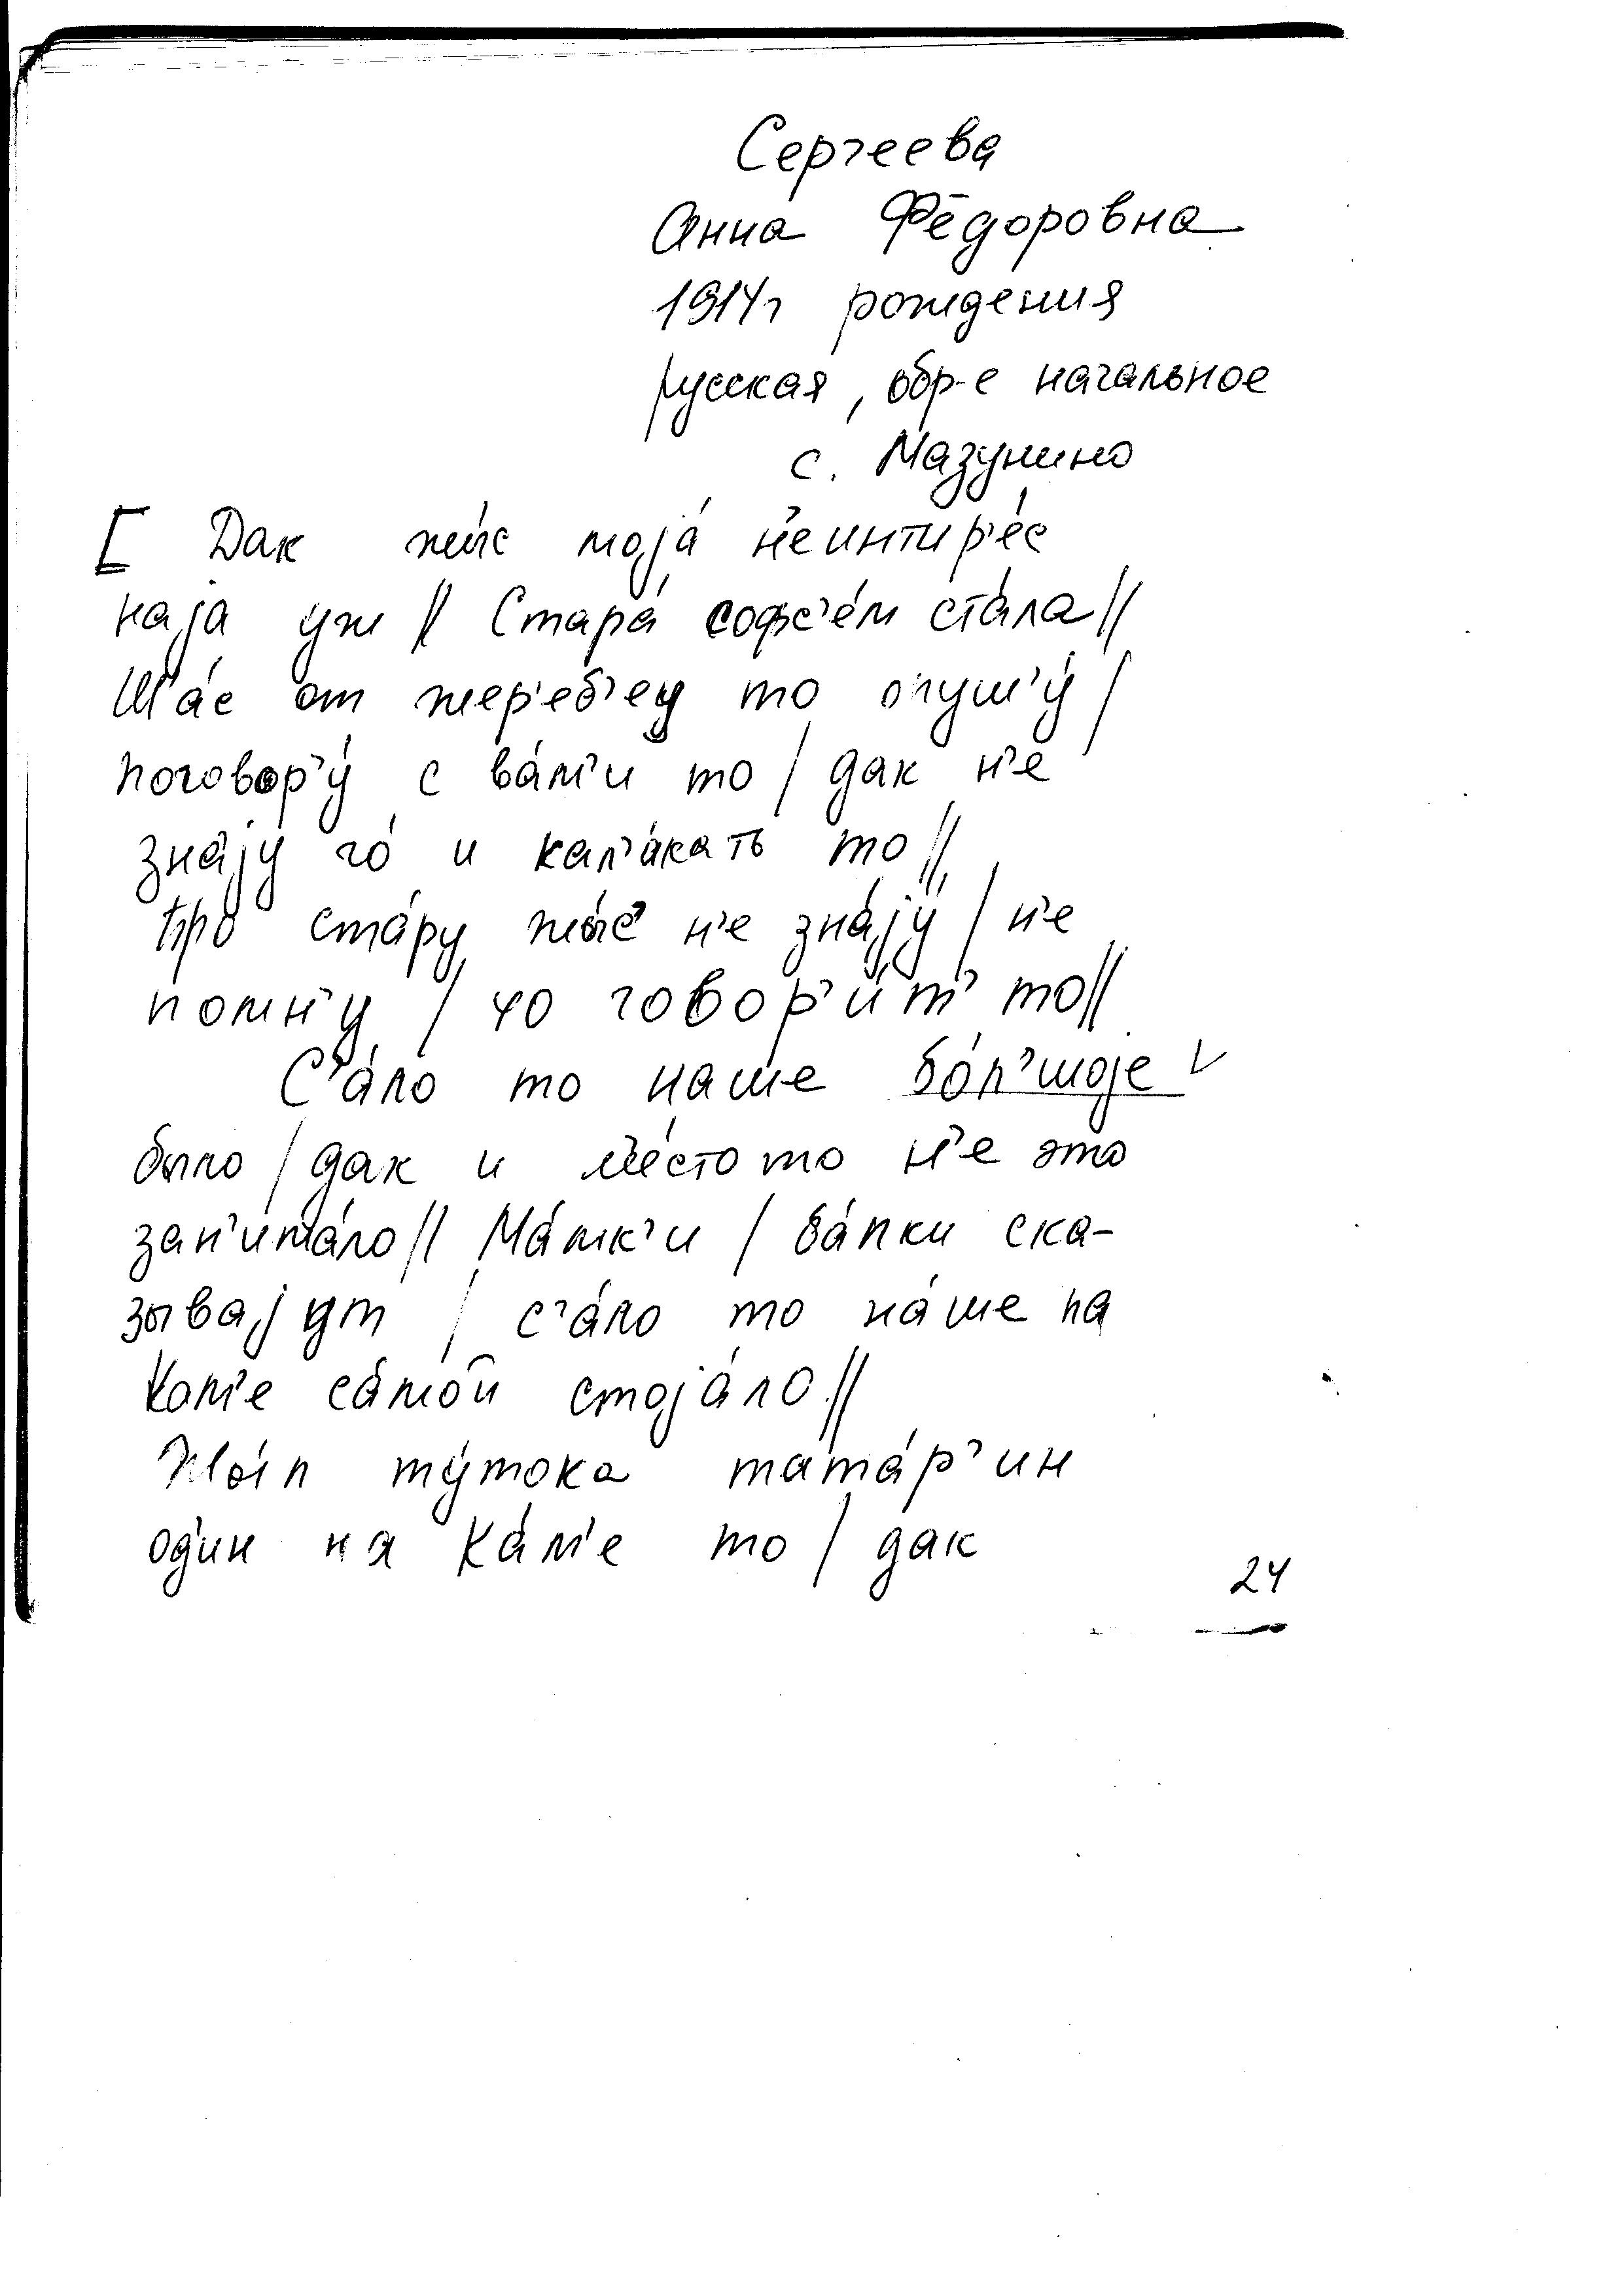 Сергеева
Анна Фёдоровна
1914г рождения
русская, обр-е начальное
с. Мазунино
[ Дак жы́с' моjа́ н'еинтир'е́с
наjа уж // Стара́ софс'е́м ста́ла //
Ш'а́с от жер'еб'ец то пушч'у́ /
поговор'у́ с ва́м'и то / дак н'е
зна́jу чо́ и кал'а́кать то //
Про ста́ру жы́с' н'е зна́jу / н'е
помн'у / чо говор'и́т' то //
С'а́ло то наше бо́л'шоjе ∨
было / дак и м'е́сто то н'е это
зан'има́ло // Ма́мк'и / ба́пки ска-
зываjут / с'а́ло то на́ше на
Кам'е са́мой стоjа́ло //
Жы́л ту́тока тата́р'ин
од'ин на Ка́м'е то / дак
24